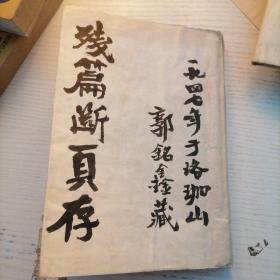 残篇斷頁存
一九四七年于珞珈山
郭銘鑫藏